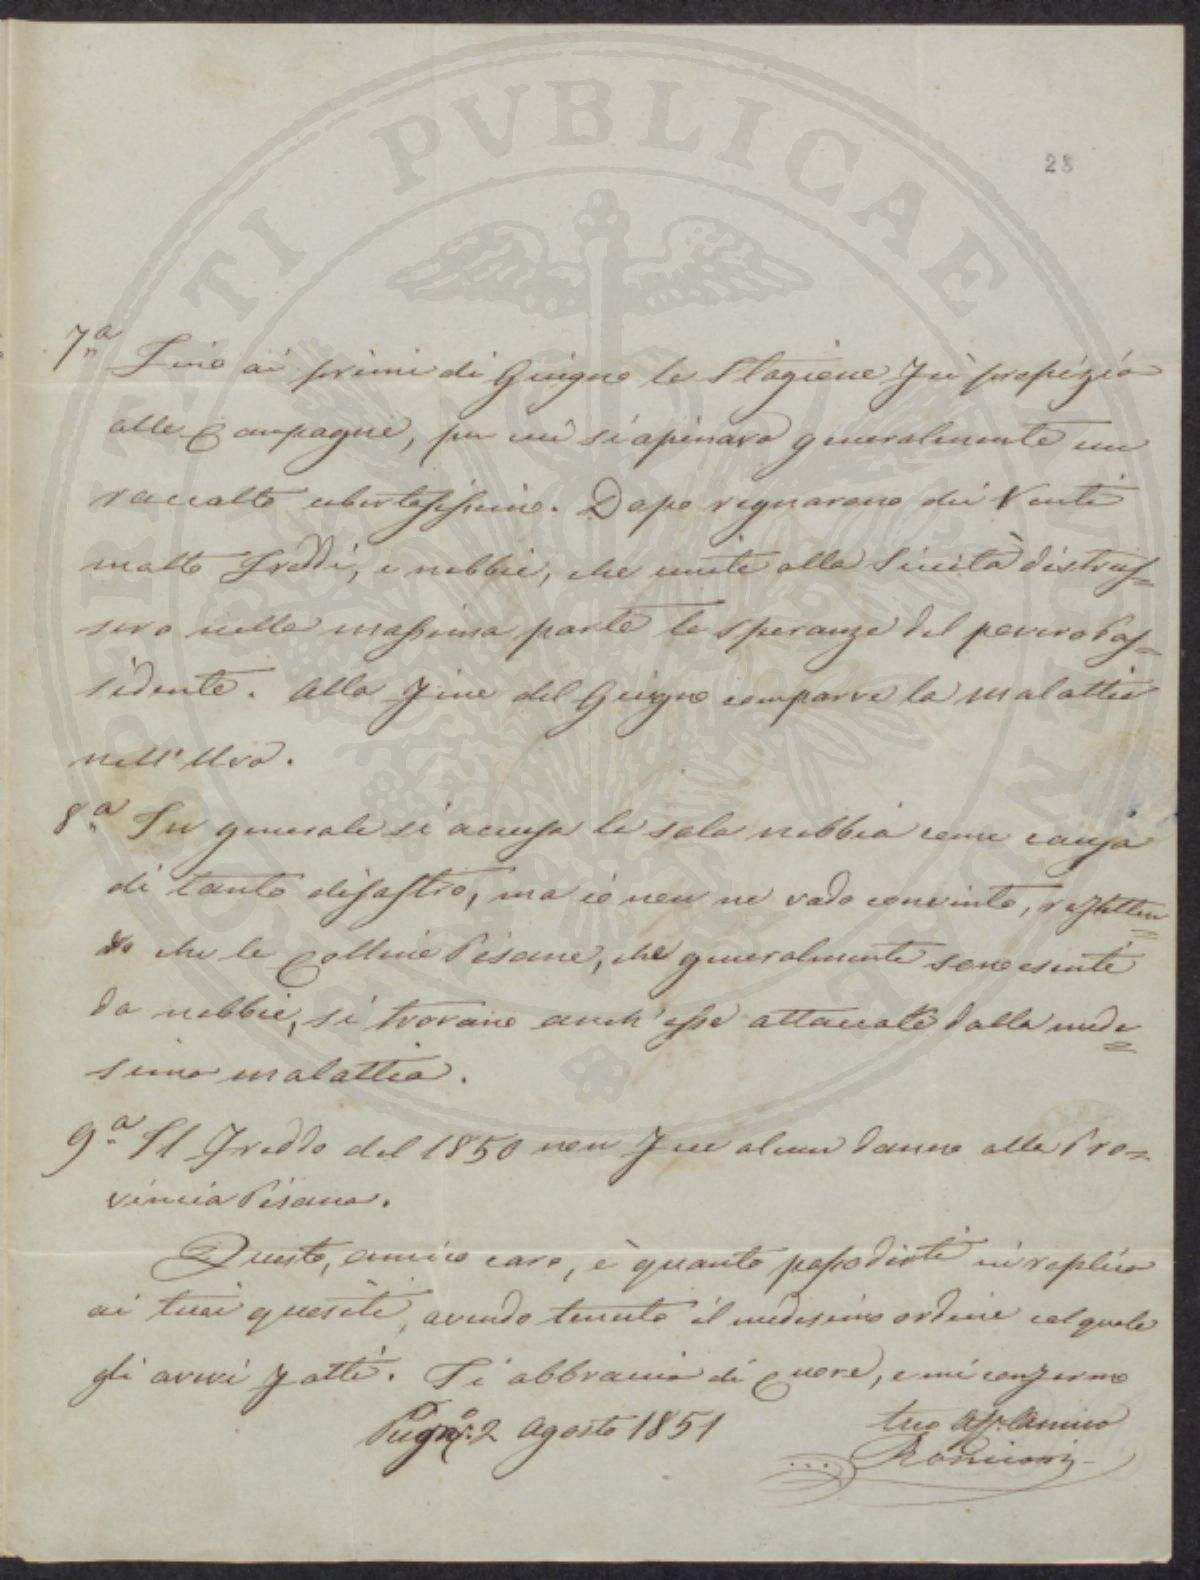 PERITATI PUBLICAE
28
7ª Fino ai primi di Giugno la Stagione fù propizia
alle Campagne, per cui si sperava generalmente un
raccolto ubertosissimo. Dopo regnarono dei Venti
molto freddi, e nebbie, che unite alla Siccità distrus=
sero nella massima parte le speranze del povero Pos=
sidente. Alla fine del Giugno comparve la malattia
nell'Uva.
8ª In generale si accusa la sola nebbia come causa
di tanto disastro, ma io non ne vado convinto, rifletten=
do che le Colline Pisane, che generalmente sono esenti
da nebbie, si trovano anch'esse attaccate dalla mede=
sima malattia.
9ª Il Freddo del 1850 non fece alcun danno alla Pro=
vincia Pisana.
Questo, amico caro, è quanto posso dirti in replica
ai tuoi quesiti, avendo tenuto il medesimo ordine col quale
gli avevi fatti. Ti abbraccio di Cuore, e mi confermo
Pugn.º 2 Agosto 1851
tuo Aff. Amico
Roncioni